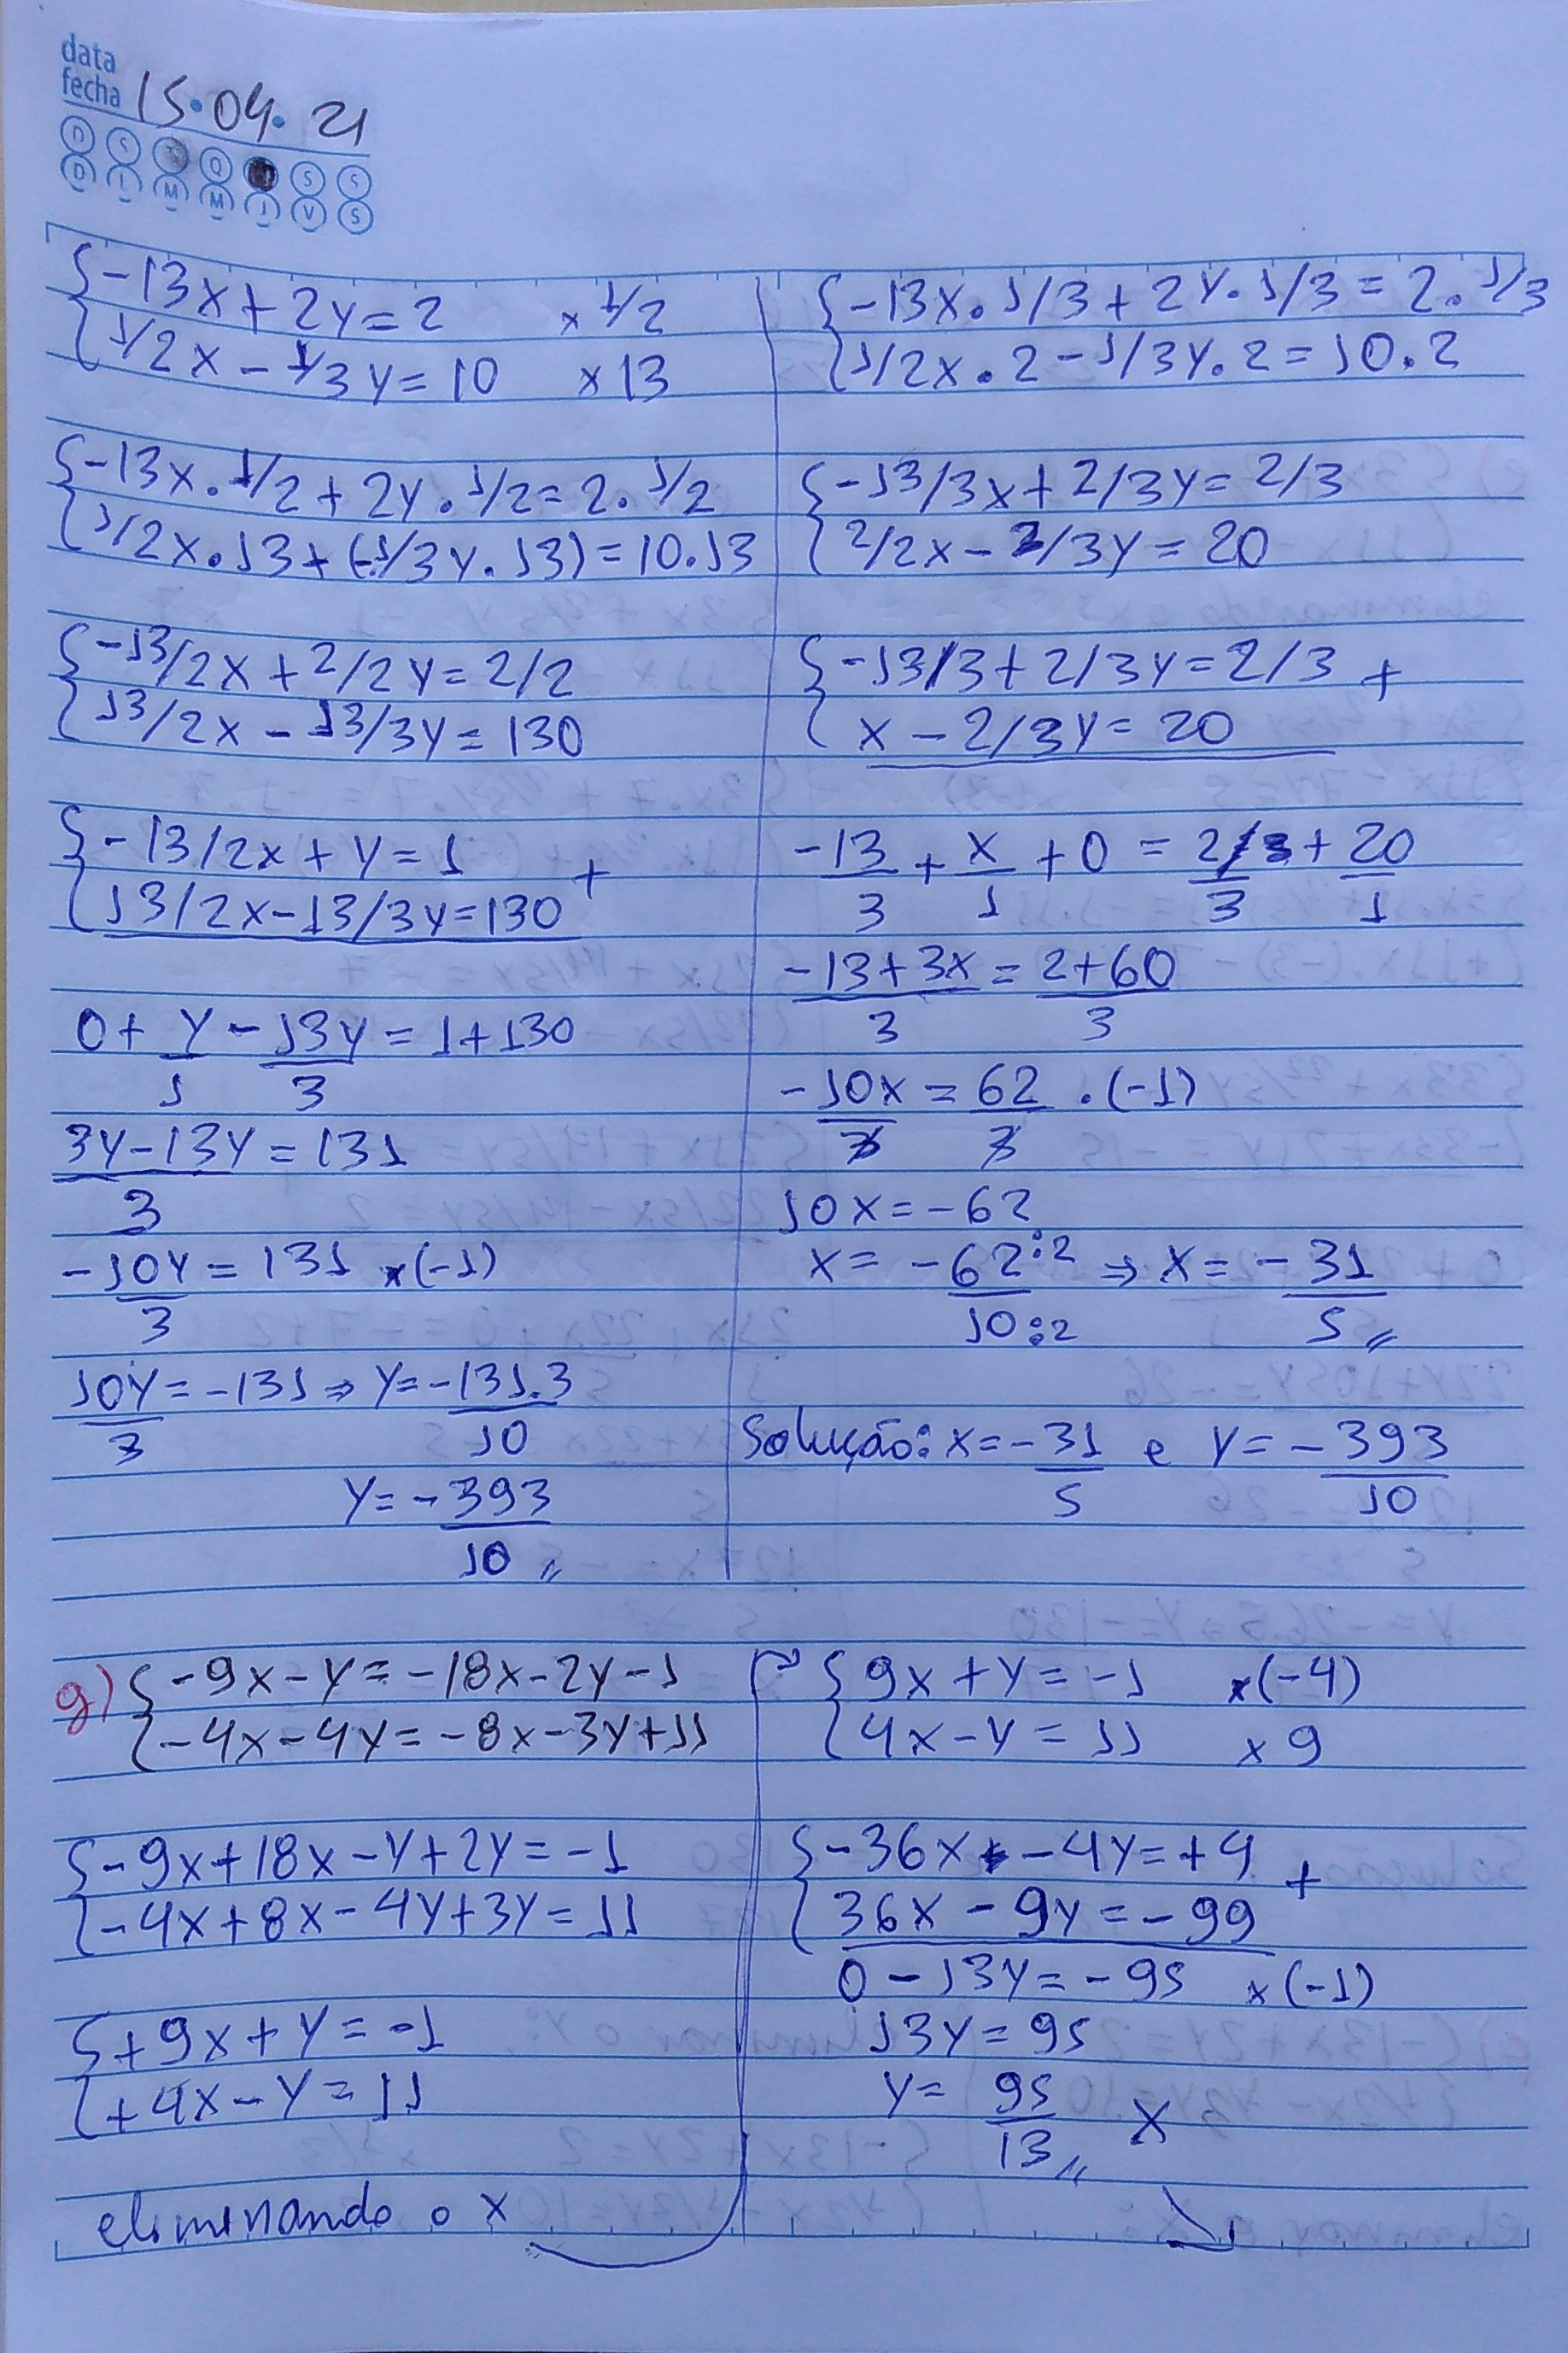 data
fecha 15.04.21
D S T Q Q S S
D L M M J V S
{-13x+2y=2 x 1/2
{1/2x - 1/3y=10 x13
{-13x.1/2+2y.1/2=2.1/2
{1/2x.13+(-1/3y.13)=10.13
{-13/2x+2/2y=2/2
{13/2x-13/3y=130
{-13/2x+y=1 +
{13/2x-13/3y=130
0+ y/1 - 13y/3 = 1+130
3y-13y/3 = 131
-10y/3 = 131 x(-1)
10y/3 = -131 ⇒ y=-131.3/10
y=-393/10 〃
{-13x.1/3+2y.1/3=2.1/3
{1/2x.2-1/3y.2=10.2
{-13/3x+2/3y=2/3
{2/2x-2/3y=20
{-13/3+2/3y=2/3 +
{x-2/3y=20
-13/3 + x/1 + 0 = 2/3 + 20/1
-13+3x/3 = 2+60/3
-10x/3 = 62/3 .(-1)
10x=-62
x= -62:2/10:2 ⇒ x= -31/5 〃
Solução: x=-31/5 e y=-393/10
g) {-9x-y=-18x-2y-1
{-4x-4y=-8x-3y+11
{-9x+18x-y+2y=-1
{-4x+8x-4y+3y=11
{+9x+y=-1
{+4x-y=11
eliminando o x
{9x+y=-1 x(-4)
{4x-y=11 x9
{-36x-4y=+4 +
{36x-9y=-99
0-13y=-95 x(-1)
13y=95
y= 95/13 〃 X